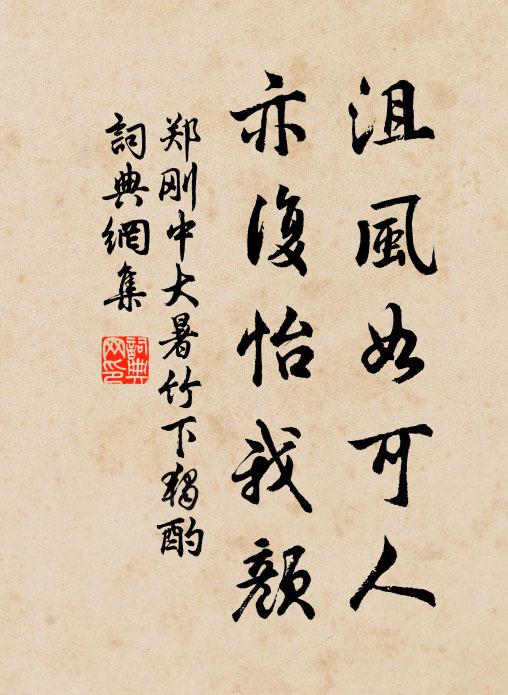 沮風如可人
亦復怡我顏
郑刚中大暑竹下獨酌
詞典網集
詞典網印